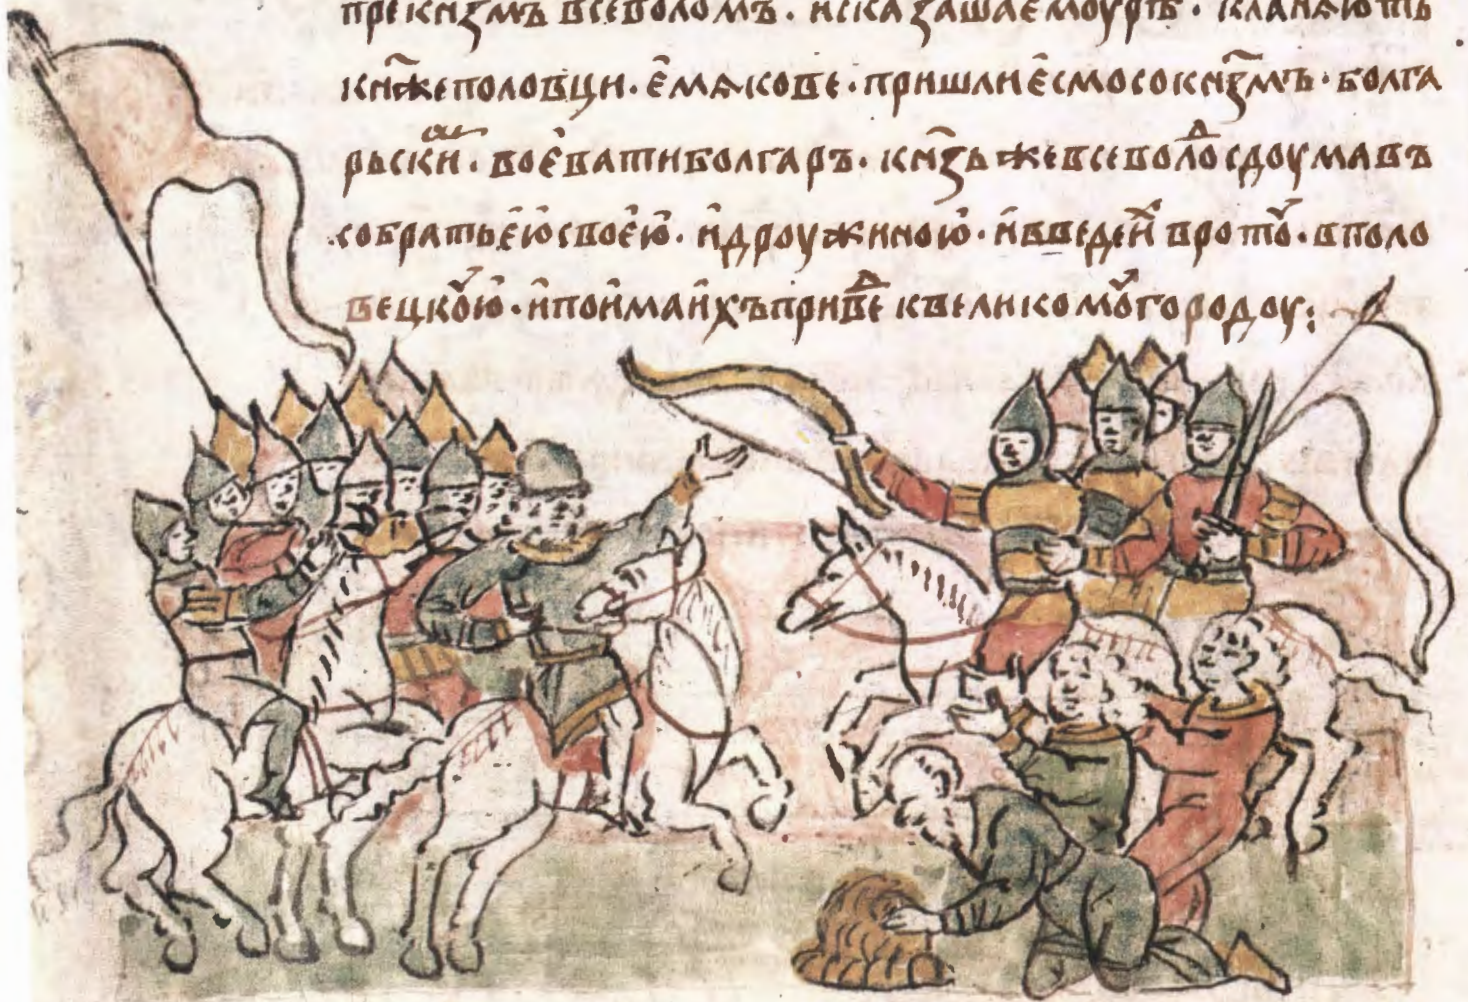 пре кнѧзмъ всеволомъ · и сказаша емоу рѣ · кланѧють
кн҃же половци · е҆мѧкове · пришли е҆смо со кнѧзмъ · болга
рьски҆ · вое҆вати болгаръ · кн҃зь же всеволоⷣ сдоумавъ
со братьею҆ своею҆ · и҆ дроужиною҆ · и҆ введе и҆ⷯ в ротоу҆ · в поло
вецкоую҆ · и҆ пои҆ма и҆хъ приведⷣе к великомоу городоу :